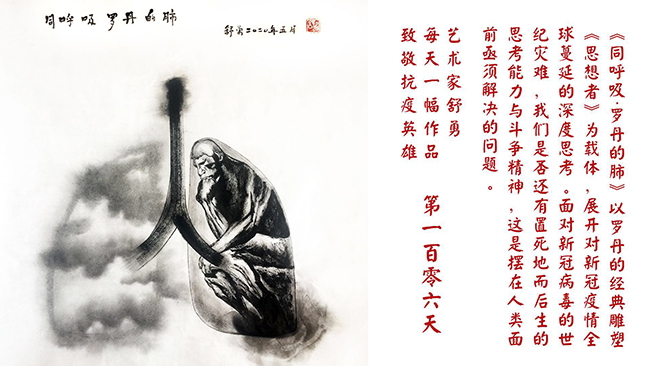 同呼吸 罗丹的肺
舒勇二〇二〇年五月
《同呼吸·罗丹的肺》以罗丹的经典雕塑
《思想者》为载体，展开对新冠疫情全
球蔓延的深度思考。面对新冠病毒的世
纪灾难，我们是否还有置死地而后生的
思考能力与斗争精神，这是摆在人类面
前亟须解决的问题。
艺术家舒勇
每天一幅作品
致敬抗疫英雄
第一百零六天